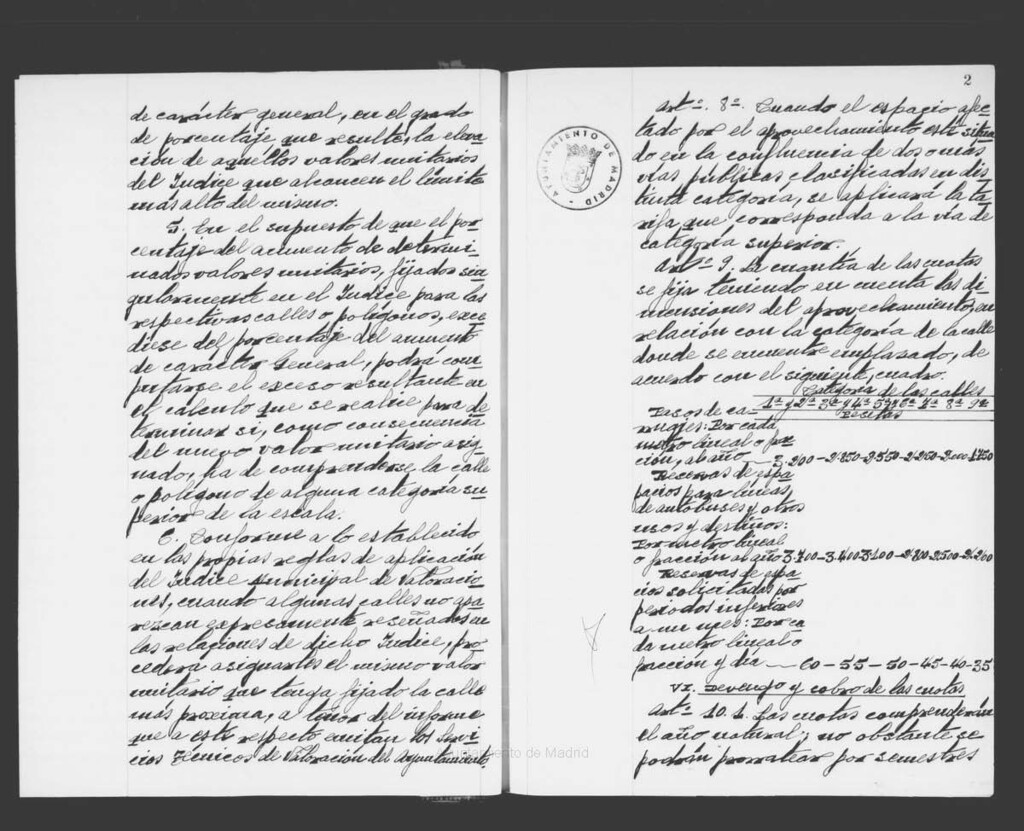 de carácter general, en el grado
de porcentaje que resulte, la eleva
ción de aquellos valores unitarios
del Indice que alcancen el límite
más alto del mismo.
5. En el supuesto de que el por
centaje del aumento de determi-
nados valores unitarios, fijados sin
gularmente en el Indice para las
respectivas calles o polígonos, exce
diese del porcentaje del aumento
de carácter General, podrá com
putarse el exceso resultante en
el calculo que se realice para de
terminar si, como consecuencia
del nuevo valor unitario asig-
nado, ha de comprenderse la calle
o polígono de alguna categoría su
perior de la escala.
6. Conforme a lo establecido
en las propias reglas de aplicación
del Indice Municipal de Valoracio
nes, cuando algunas calles no apa
rezcan expresamente reseñados en
las relaciones de dicho Indice, pro-
cedera asignarles el mismo valor
unitario que tenga fijado la calle
más proxima, a tenor del informe
que a este respecto emitan los Servi
cios Técnicos de Valoración del Ayuntamiento.
2
AYUNTAMIENTO DE MADRID
Artº. 8º. Cuando el espacio afec
tado por el aprovechamiento esté situa
do en la confluencia de dos o más
vías públicas, clasificadas en dis
tinta categoría, se aplicará la ta
rifa que corresponda a la vía de
categoría superior.
Artº 9. La cuantía de las cuotas
se fija teniendo en cuenta las di-
mensiones del aprovechamiento, en
relación con la categoría de la calle
donde se encuentre emplazado, de
acuerdo con el siguiente cuadro.
Categoría de las calles
Pasos de ca- 1ª y 2ª 3ª y 4ª 5ª y 6ª 7ª 8ª 9ª
Pesetas
rruajes: Por cada
metro lineal o frac
ción, al año 3.200-2.850-2.550-2.250-2.000-1.750
Reservas de espa
pacios para lineas
de autobuses y otros
usos y destinos:
Por metro lineal
o fracción al año 3.700-3.400-3.100-2.800-2.500-2.200
Reservas de espa
cios solicitados por
periodos inferiores
a un mes: Por ca
da metro lineal o
fracción y día 60-55-50-45-40-35
VI. Devengo y cobro de las cuotas
Artº 10. 1. Las cuotas comprenderán
el año natural; no obstante se
podrán prorratear por semestres
Ayuntamiento de Madrid